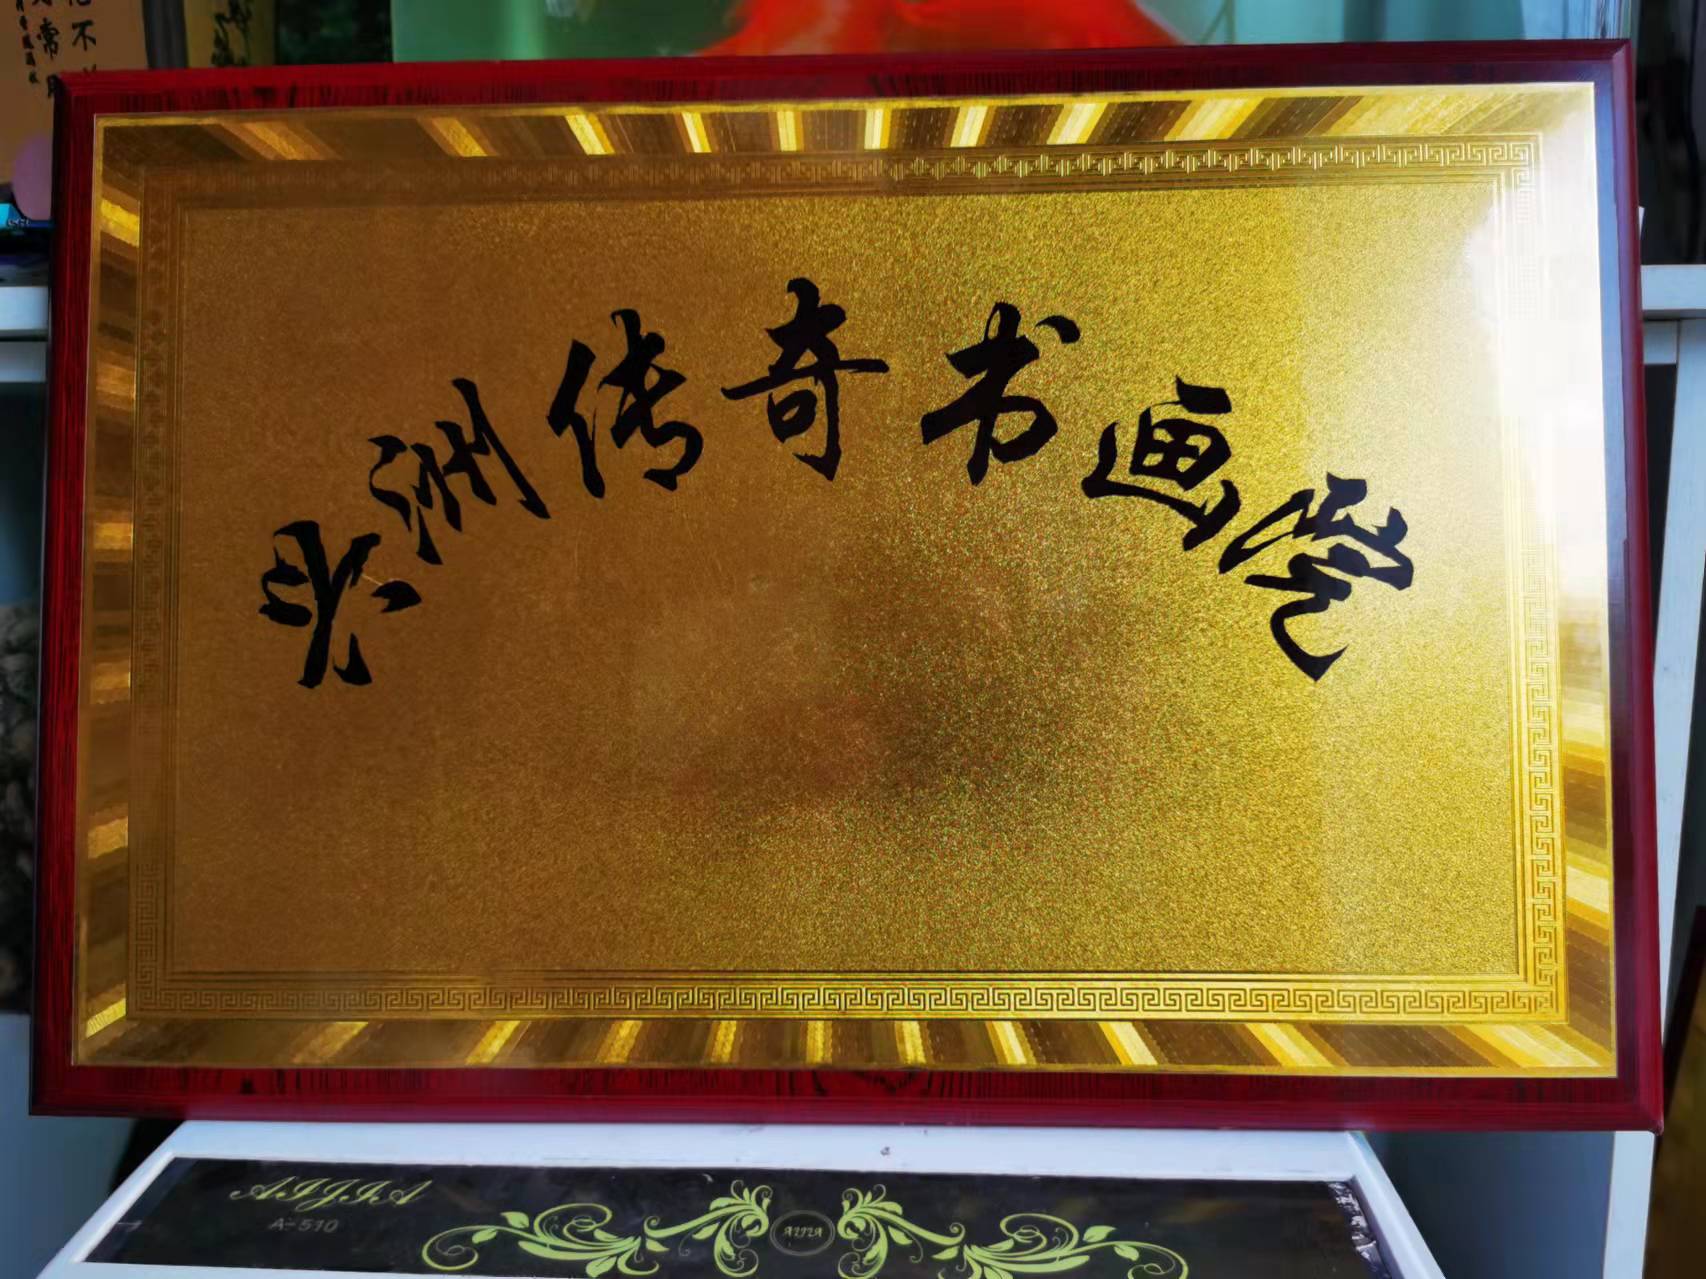 洲传奇书画
不
常
AIJIA
A-510
AIJIA